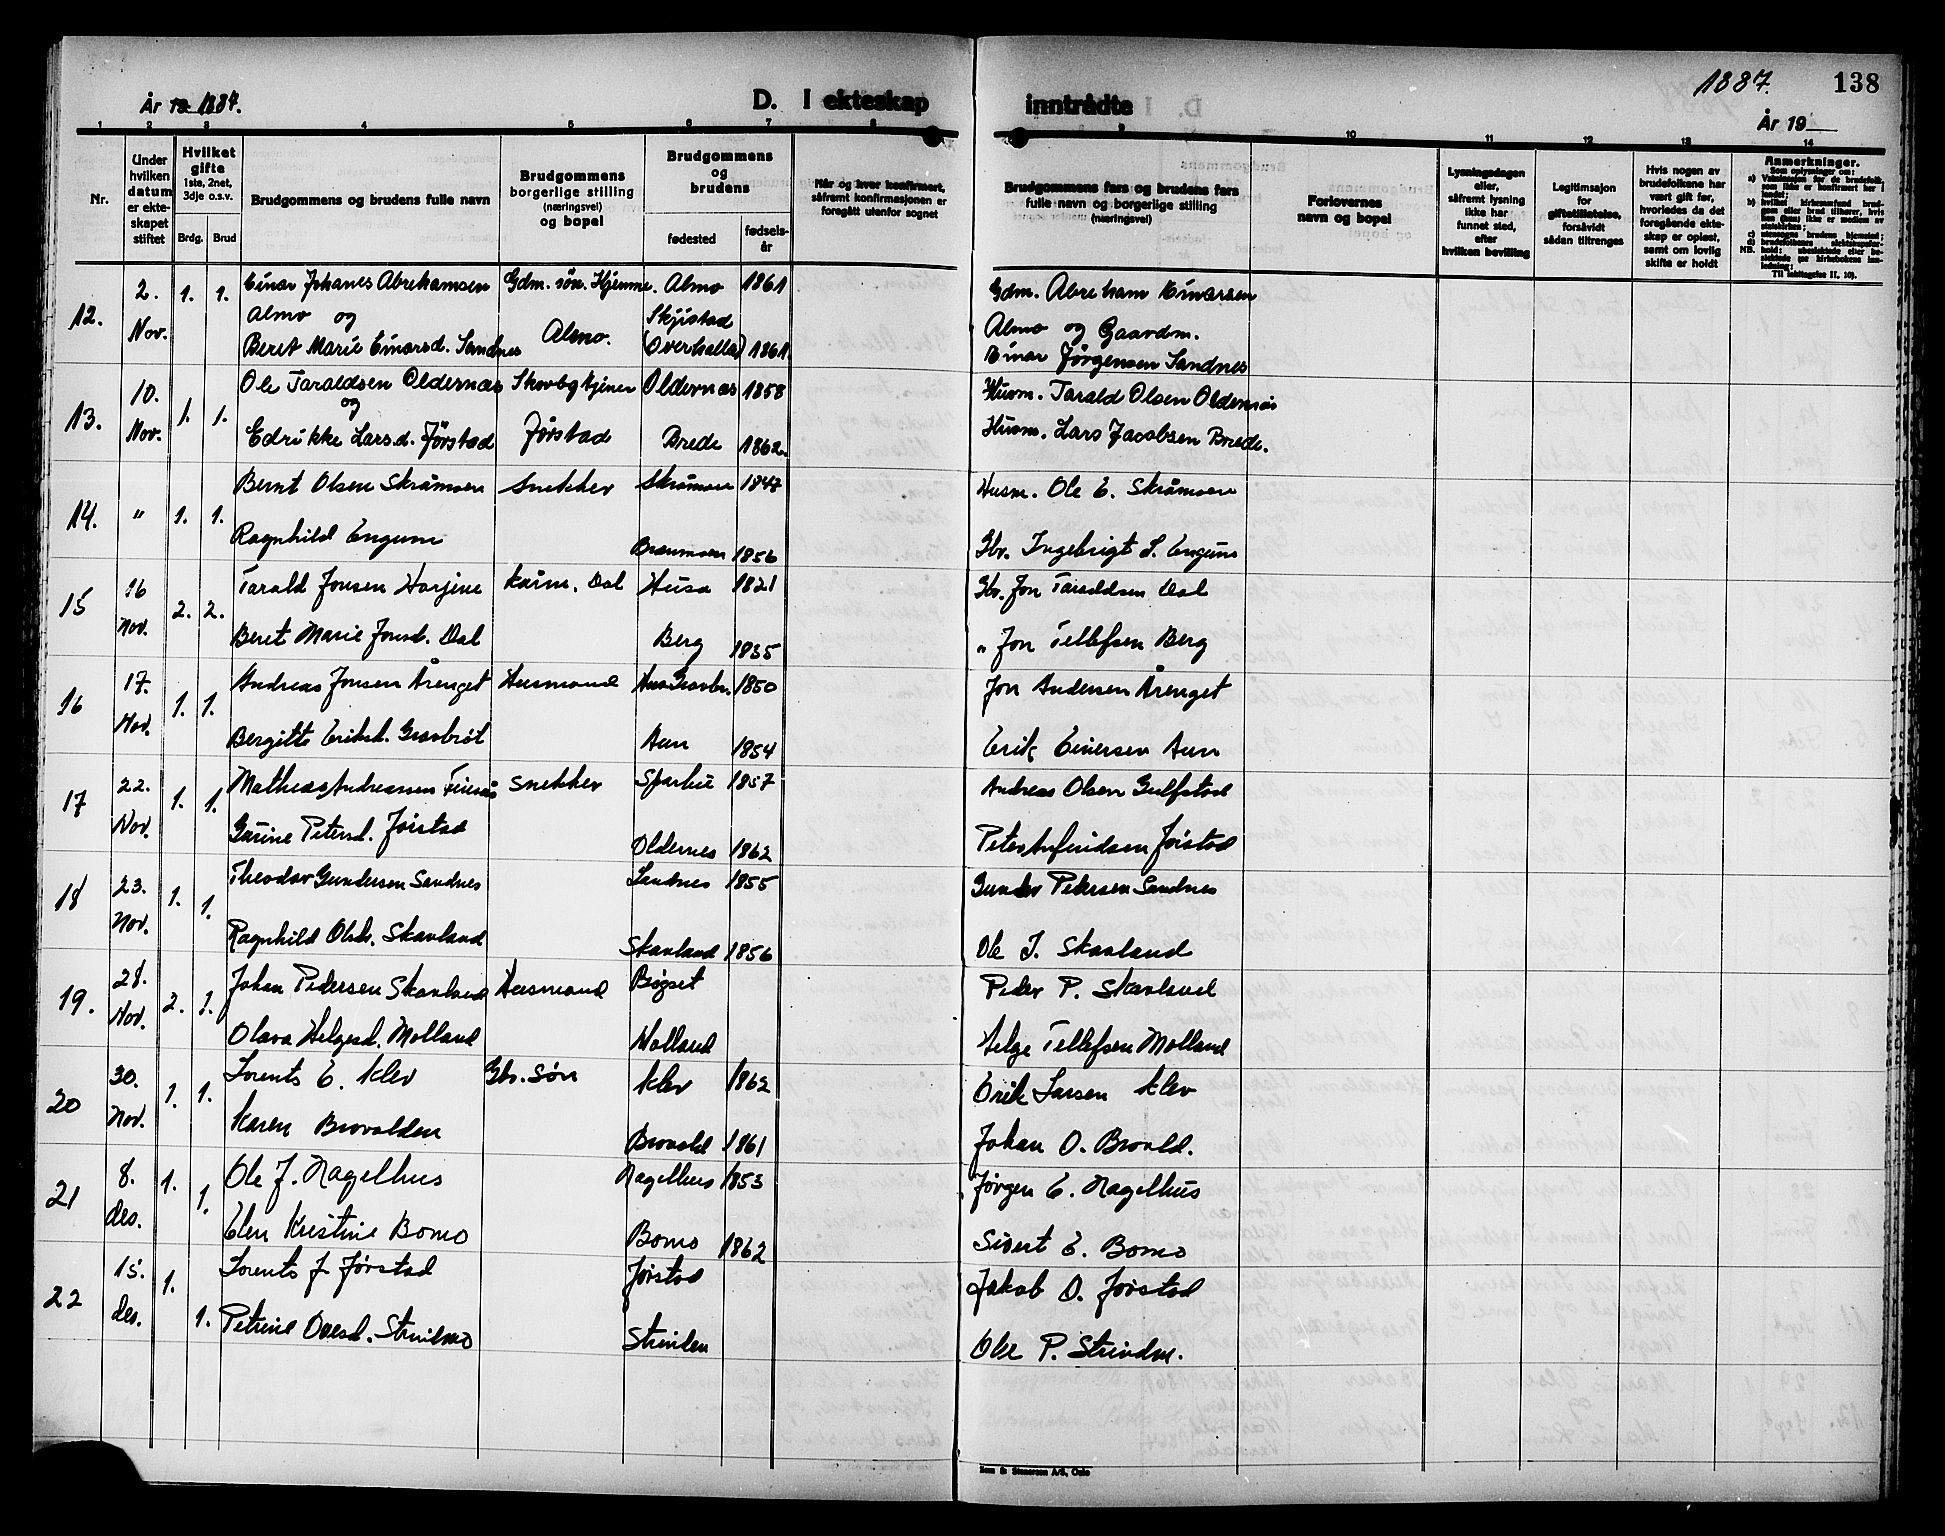 År 19 1887.
D. I ekteskap
inntrådte
1887.
138
År 19
1 2 3 4 5 6 7 8 9 10 11 12 13 14
Nr.
Under hvilken datum er ekteskapet stiftet
Hvilket gifte 1ste, 2net, 3dje o.s.v.
Brdg. Brud
Brudgommens og brudens fulle navn
Brudgommens borgerlige stilling (næringsvei) og bopel
Brudgommens og brudens
fødested
fødselsår
Når og hvor konfirmert, såfremt konfirmasjonen er foregått utenfor sognet
Brudgommens fars og brudens fars fulle navn og borgerlige stilling (næringsvei)
Forlovernes navn og bopel
Lysningsdagen eller, såfremt lysning ikke har funnet sted, efter hvilken bevilling
Legitimasjon for giftetillatelse, forsåvidt sådan tiltrenges
Hvis nogen av brudefolkene har vært gift før, hvorledes da det foregående ekteskap er opløst, samt om lovlig skifte er holdt
Anmerkninger.
12. 2. Nov. 1. 1. Einar Johanes Abrehamsen Gdm. søn. Hjemme. Almo 1861 Gdm. Abreham Einarsen
Almo og Almo. Skjistad Almo og Gaardm.
Beret Marie Einarsd. Sandnes (Overhalla) 1861. Einar Jørgensen Sandnes
13. 10. Nov. 1. 1. Ole Taraldsen Oldernæs Oldernæs 1858 Husm. Tarald Olsen Oldernæs
og
Edrikke Larsd. Jørstad Jørstad Brede 1862. Husm. Lars Jacobsen Brede.
14. " 1. 1. Bernt Olsen Skråmoen Snekker Skråmoen 1847 Husm. Ole E. Skråmoen
Ragnhild Engum 1856 Gbr. Ingebrigt S. Engum
15 16 Nov. 2. 2. Tarald Jonsen Dal Husa 1821 Gbr. Jon Taraldsen Dal
Beret Marie Jonsd. Dal Berg 1835 " Jon Tellefsen Berg
16 17. Nov. 1. 1. Andreas Jonsen Årenget Husmand 1850 Jon Andersen Årenget
Bergitte Eriksd. Gravbrøt Aun 1854 Erik Einersen Aun
17 22. Nov. 1. 1. Mathias Andreassen Snekker 1857 Andreas Olsen Gulfstad
Gurine Petersd. Jørstad Oldernes 1862 Peter Anfindsen Jørstad
18 23. Nov. 1. 1. Theodor Gundersen Sandnes Sandnes 1855 Gunder Pedersen Sandnes
Ragnhild Olsdr. Skavland Skavland 1856 Ole J. Skavland
19. 28. Nov. 2. 1. Johan Pedersen Skavland Husmand Bøgset Peder P. Skavland
Olava Helgesd. Molland Molland Helge Tellefsen Molland
20 30. Nov. 1. 1. Lorents E. Klev Gbr. Søn Klev 1862 Erik Larsen Klev
Karen Brovolden Brovold 1861 Johan O. Brovld.
21 8. des. 1. 1. Ole J. Nagelhus Nagelhus 1853 Jørgen E. Nagelhus
Elen Kristine Bomo Bomo 1862 Sivert E. Bomo
22 15. des. 1. 1. Lorents J Jørstad Jørstad Jakob O. Jørstad
Petrine Olesd. Strindmo Strinden Ole P. Strindm.